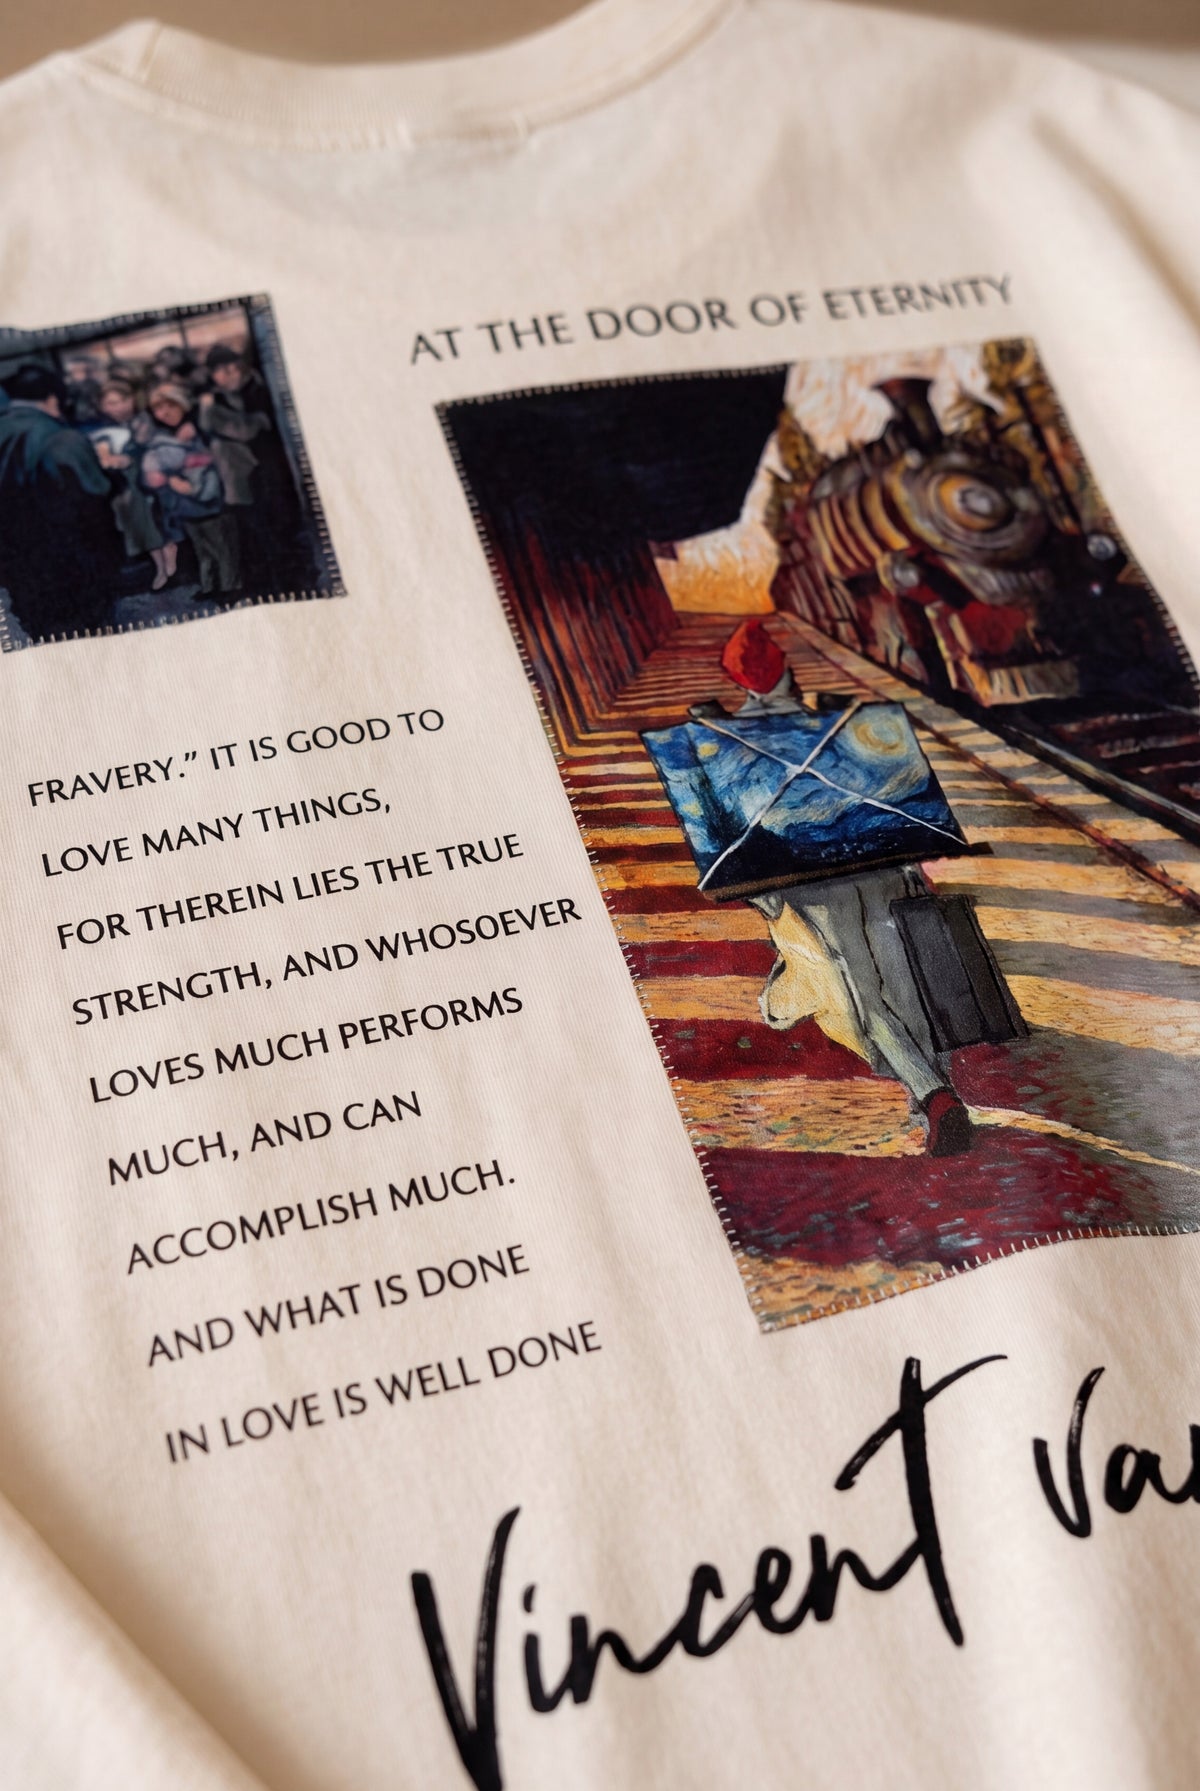 AT THE DOOR OF ETERNITY
FRAVERY.” IT IS GOOD TO
LOVE MANY THINGS,
FOR THEREIN LIES THE TRUE
STRENGTH, AND WHOSOEVER
LOVES MUCH PERFORMS
MUCH, AND CAN
ACCOMPLISH MUCH.
AND WHAT IS DONE
IN LOVE IS WELL DONE
Vincent Va